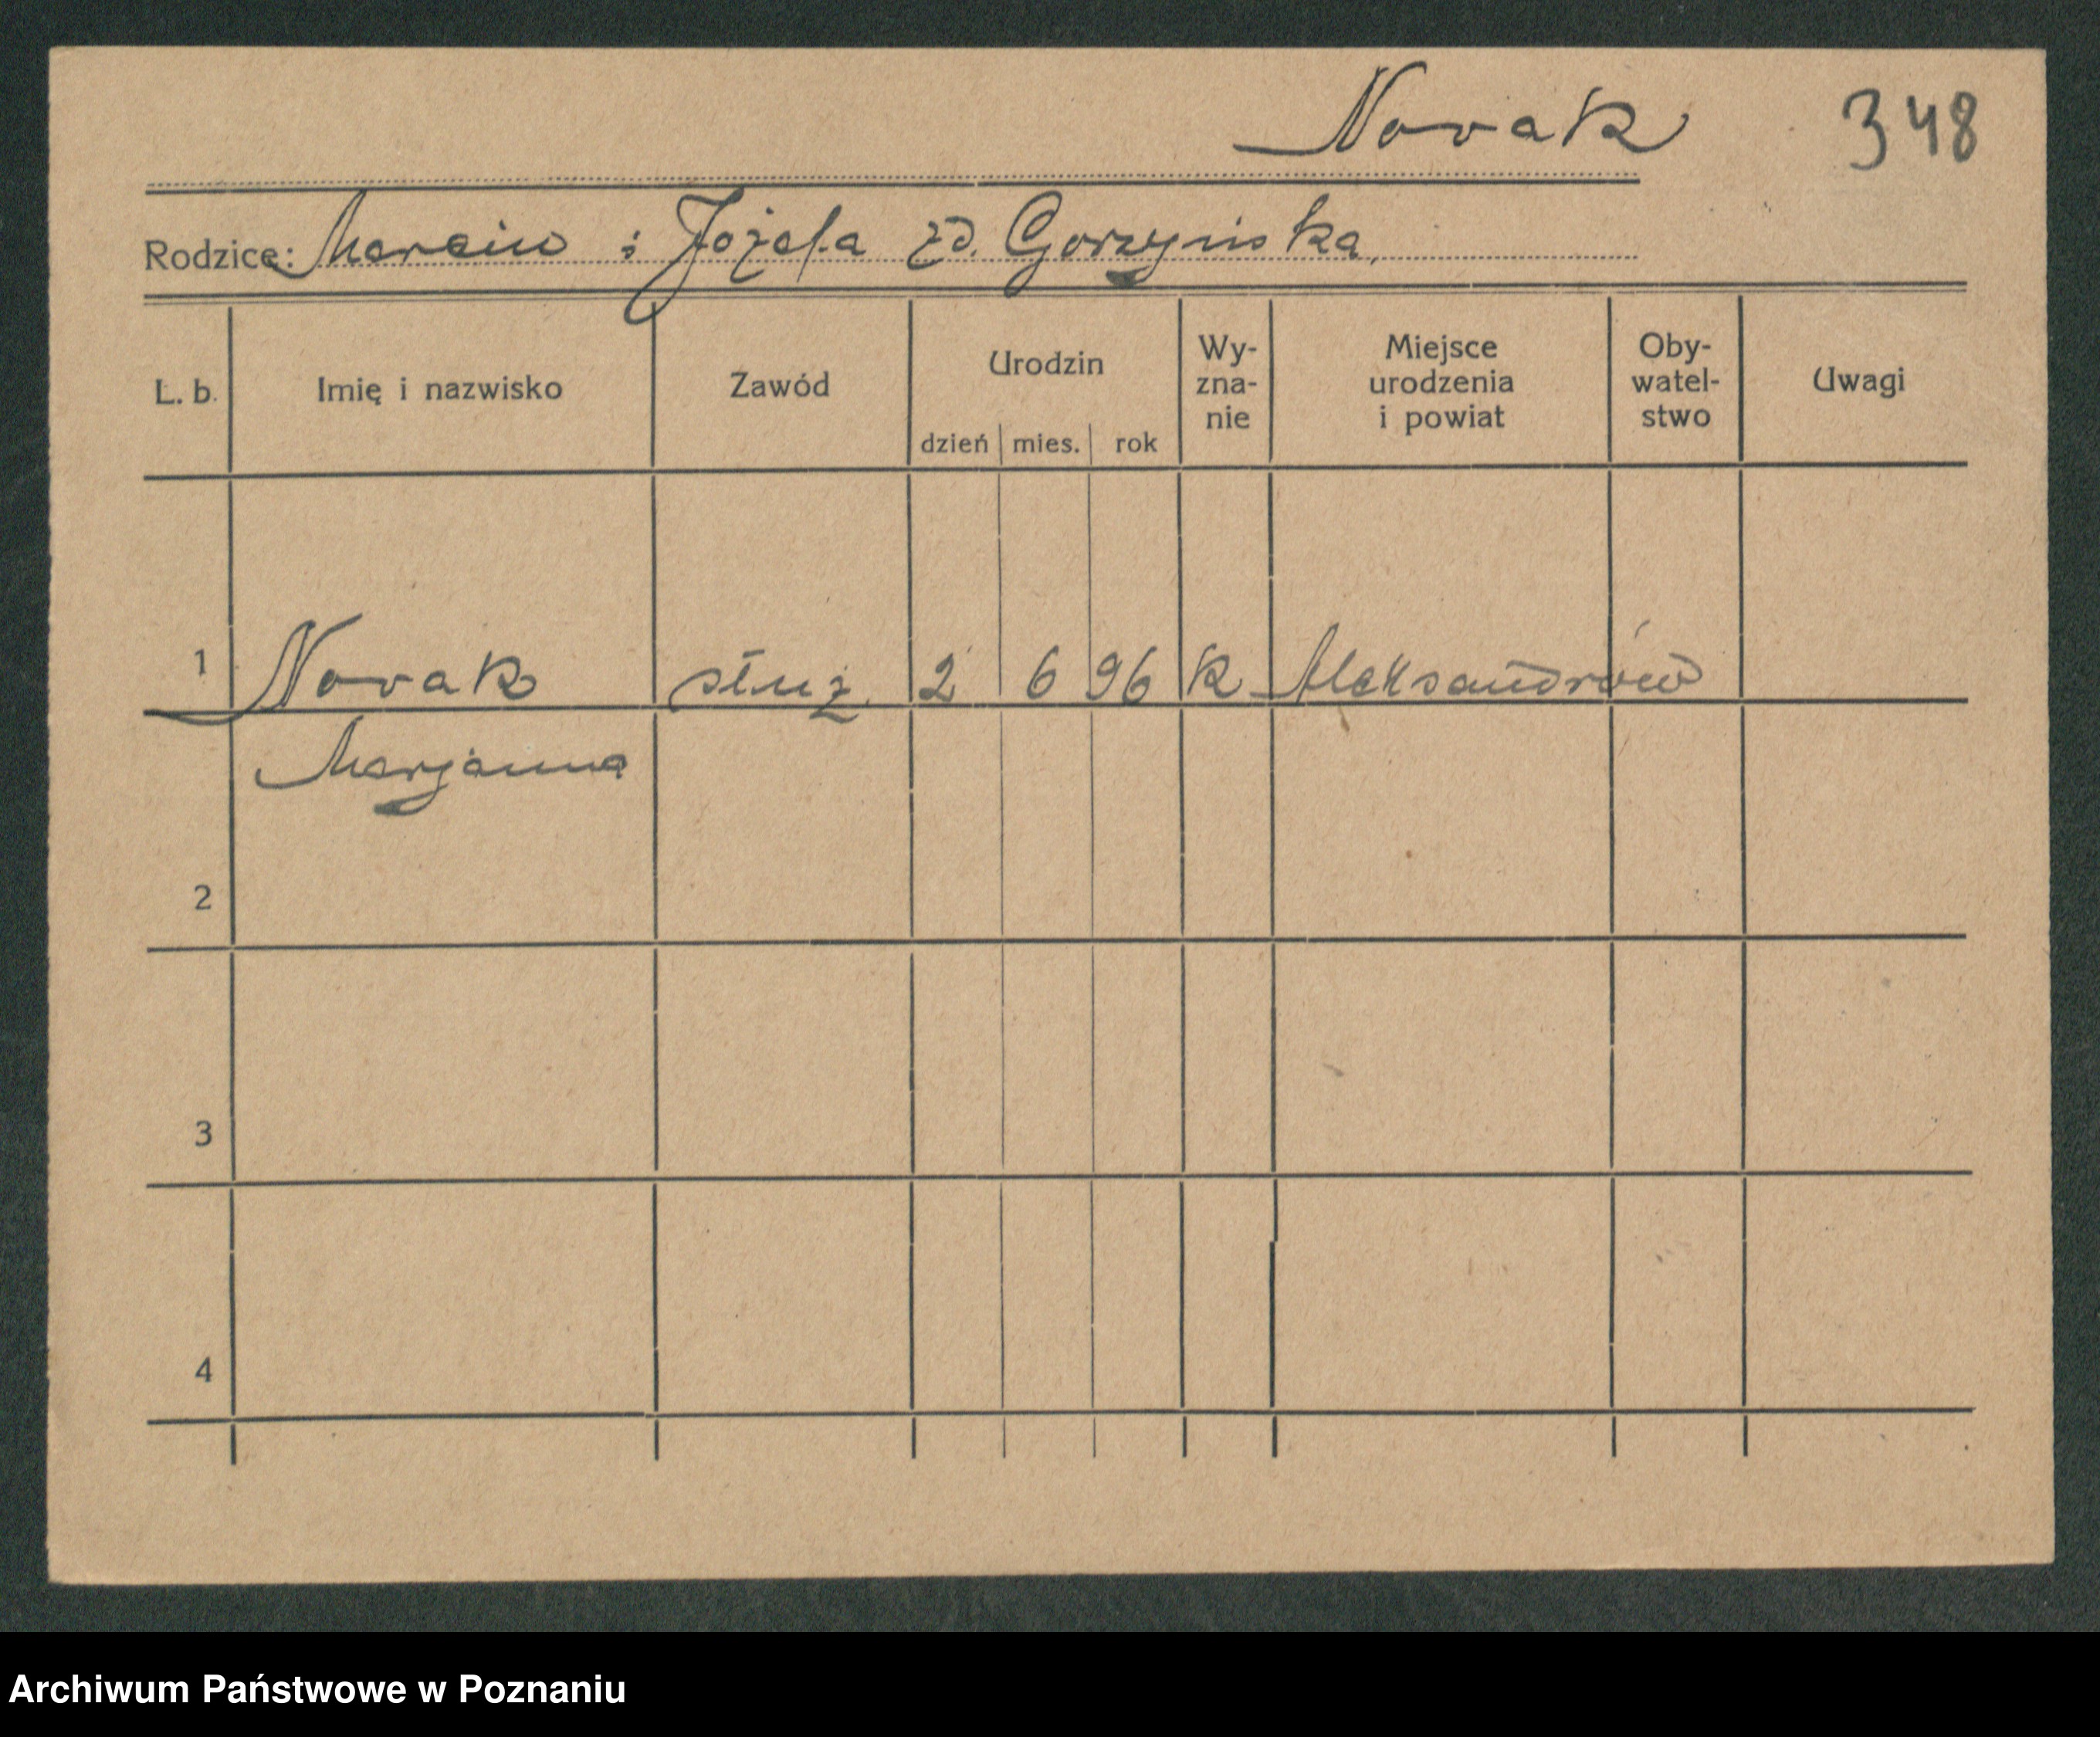 Novak 348
Rodzice: Marcin i Józefa zd. Gorzyńska,
L. b. Imię i nazwisko Zawód Urodzin dzień mies. rok Wy-zna-nie Miejsce urodzenia i powiat Oby-watel-stwo Uwagi
1 Novak służ. 2 6 96 k Aleksandrów
Marjanna
2
3
4
Archiwum Państwowe w Poznaniu